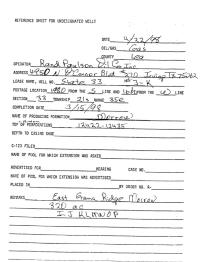 REFERENCE SHEET FOR UNDESIGNATED WELLS
DATE 4/22/98
OIL/GAS Gas
COUNTY Lea
OPERATOR Rand Paulson Oil Co. Inc.
ADDRESS 4950 N O'Connor Blvd #270 Irving TX 75062
LEASE NAME, WELL NO. State 33 #3-K
FOOTAGE LOCATION 1980 FROM THE S LINE AND FROM THE W LINE
SECTION 33 TOWNSHIP 21s RANGE 35e
COMPLETION DATE 3/15/98
NAME OF PRODUCING FORMATION Morrow
TOP OF PERFORATIONS 12422-12435
DEPTH TO CASING SHOE
C-123 FILED
NAME OF POOL FOR WHICH EXTENSION WAS ASKED
ADVERTISED FOR HEARING CASE NO.
NAME OF POOL FOR WHICH EXTENSION WAS ADVERTISED
PLACED IN BY ORDER NO. R-
REMARKS East Grama Ridge Morrow
320 ac
I J KLMNOP